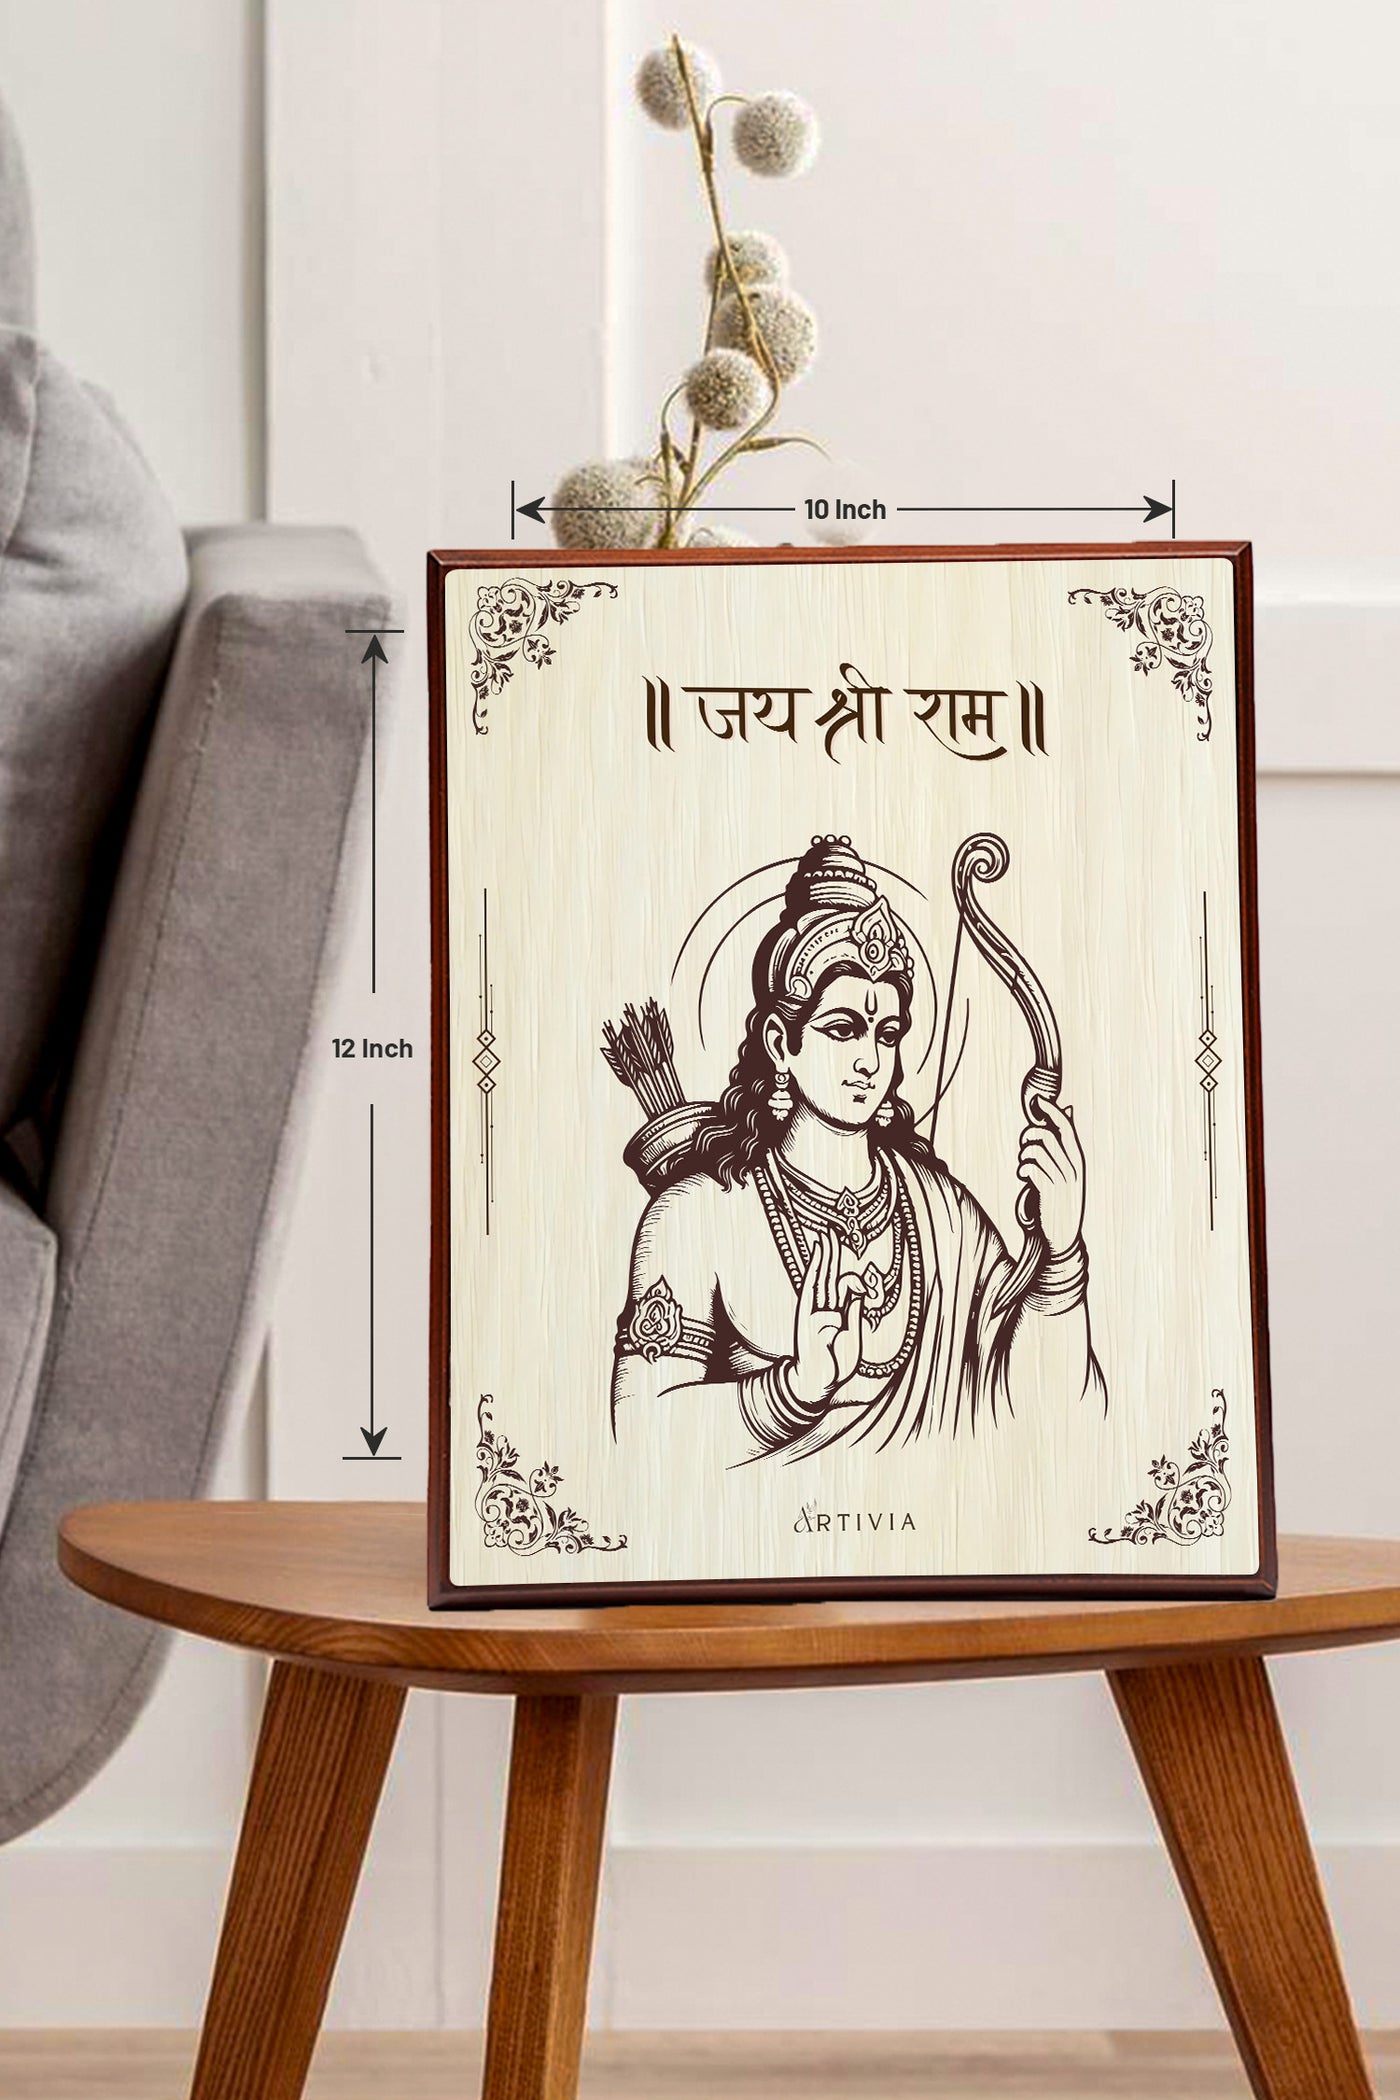 10 Inch
॥ जय श्री राम ॥
12 Inch
ARTIVIA